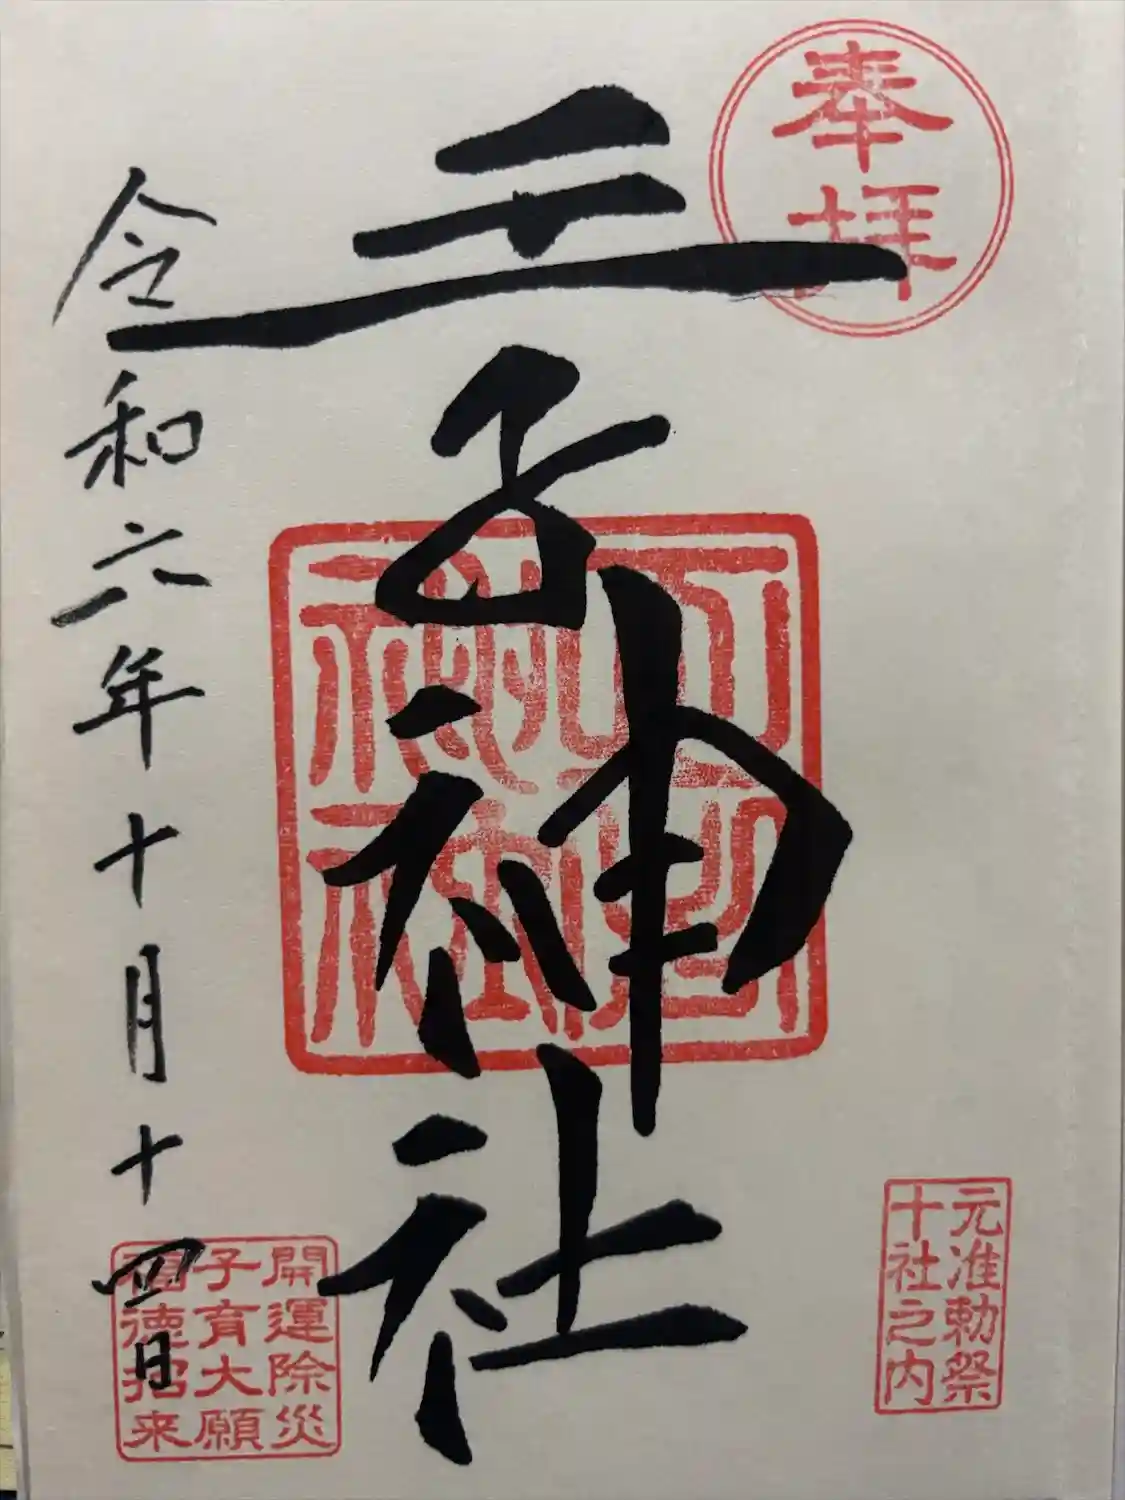 奉拝
元准勅祭
十社之内
王子神社
令和六年十月十四日
開運除災
子育大願
徳招来